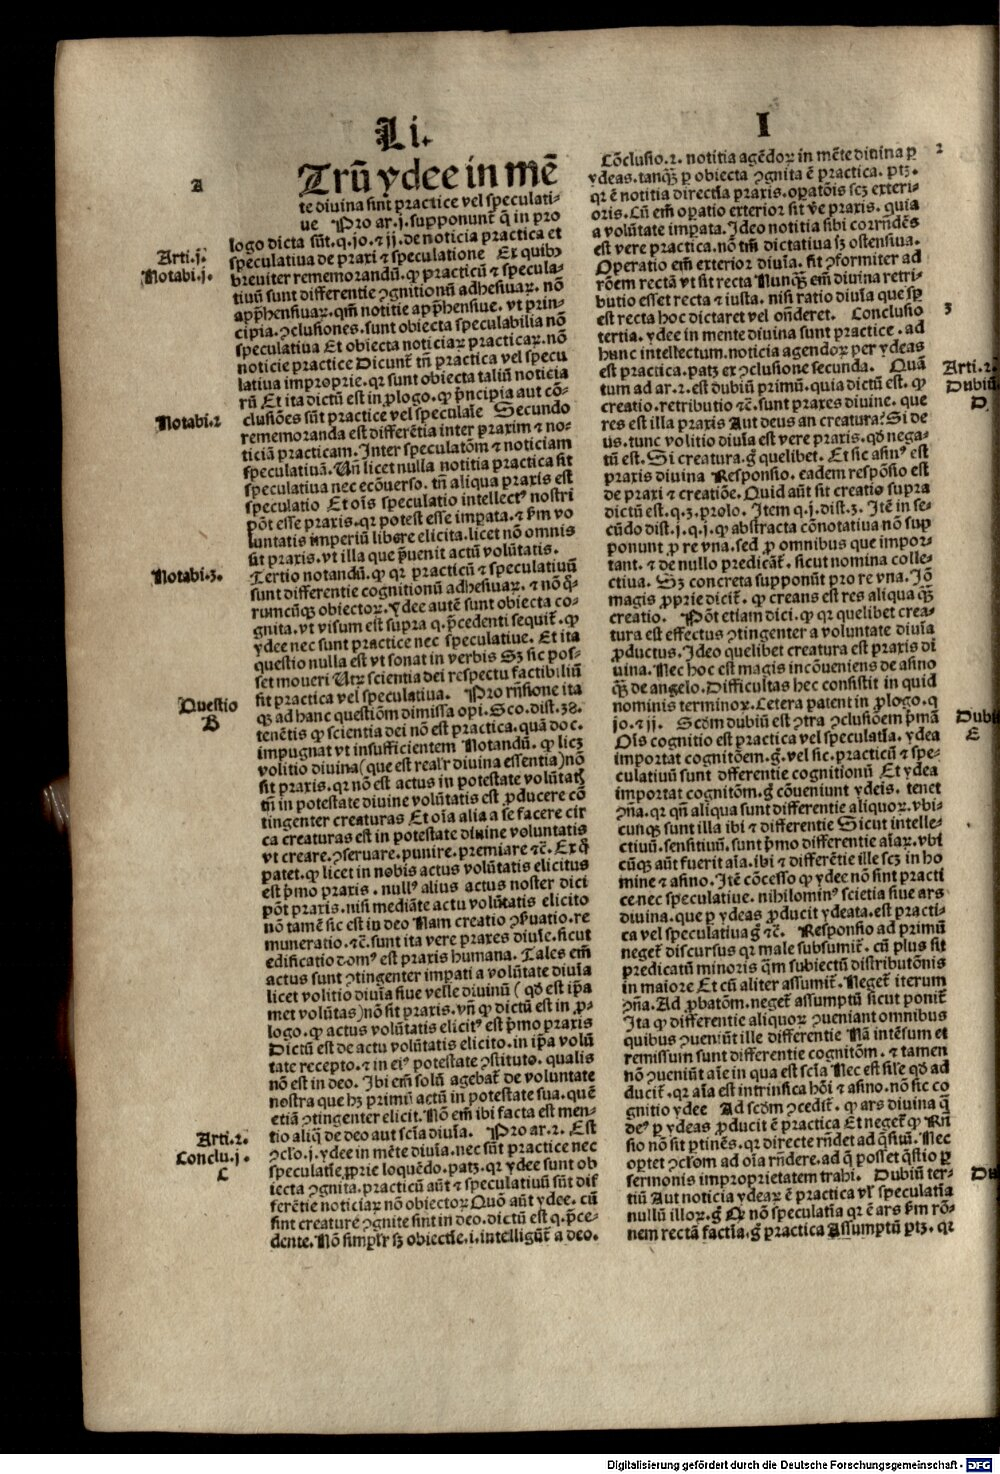 Li.
I
A
Trū ydee in mē
te divina sint practice vel speculati-
ue Pro ar.j.supponunt̄ q̄ in pro
logo dicta sūt.q.jo.⁊ jj.de noticia practica et
Arti.j.
speculativa de praxi ⁊ speculatione Ex quibꝰ
Notabi.j.
breuiter rememorandū.ꝙ practicū ⁊ specula-
tiuū sunt differentie ꝯgnitionū adhesiuaꝝ. nō
app̄hensiuaꝝ.qm̄ notitie app̄hensiue. vt prin-
cipia.ꝯclusiones.sunt obiecta speculabilia nō
speculatiua Et obiecta noticiaꝝ practicaꝝ.nō
noticie practice Dicunt̄ tn̄ practica vel specu
latiua improprie.qꝛ sunt obiecta taliū noticia
rū Et ita dictū est in ꝓlogo.ꝙ p̄ncipia aut cō-
clusiōes sūt practice vel speculat̄e Secundo
Notabi.2
rememoranda est differētia inter praxim ⁊ no-
ticiā practicam.Inter speculatōm ⁊ noticiam
speculatiuā.Un̄ licet nulla notitia practica sit
speculatiua nec ecōuerso. tn̄ aliqua praxis est
speculatio Et oīs speculatio intellectꝰ nostri
pōt esse praxis.qꝛ potest esse imꝑata.⁊ ẜm vo
luntatis imperiū libere elicita.licet nō omnis
sit praxis.vt illa que p̄uenit actū volūtatis.
Notabi.3.
Tertio notandū.ꝙ qꝛ practicū ⁊ speculatiuū
sunt differentie cognitionū adhesiuaꝝ.⁊ nō q̄-
rumcūqꝫ obiectoꝝ.Ydee autē sunt obiecta co-
gnita.vt visum est supra q.p̄cedenti sequit̄.ꝙ
ydee nec sunt practice nec speculatiue. Et ita
questio nulla est vt sonat in verbis Sꝫ sic pos-
set moueri Utꝝ scientia dei respectu factibiliū
sit practica vel speculatiua. Pro rn̄sione ita
Questio
B
qꝫ ad hanc questiōm dimissa opi.Sco.dist.38.
tenētis ꝙ scientia dei nō est practica.quā doc.
impugnat vt insufficientem Notandū.ꝙ licꝫ
volitio divina(que est realr̄ divina essentia)nō
sit praxis.qꝛ nō est actus in potestate volūtatꝭ
tn̄ in potestate divine volūtatis est ꝓducere cō
tingenter creaturas Et oīa alia a se facere cir
ca creaturas est in potestate diuine voluntatis
vt creare.ꝯseruare.punire.premiare ⁊c̄. Ex q̄
patet.ꝙ licet in nobis actus volūtatis elicitus
est p̄mo praxis. nullꝰ alius actus noster dici
pōt praxis.nisi mediāte actu volūtatis elicito
nō tamē sic est in deo Nam creatio ꝯẜuatio.re
muneratio.⁊c̄.sunt ita vere praxes diuīe.sicut
edificatio domꝰ est praxis humana. Tales em̄
actus sunt ꝯtingenter imꝑati a volūtate diuīa
licet volitio diuīa siue velle diuinū ( qd̄ est ip̄a
met volūtas)nō sit praxis.vn̄ ꝙ dictū est in ꝓ-
logo.ꝙ actus volūtatis elicitꝰ est p̄mo praxis
Dictū est de actu volūtatis elicito.in ip̄a volū
tate recepto.⁊ in eiꝰ potestate ꝯstituto. qualis
nō est in deo. Ibi em̄ solū agebat̄ de voluntate
nostra que hꝫ primū actū in potestate sua.quē
etiā ꝯtingenter elicit.Nō em̄ ibi facta est men-
tio aliq̄ de deo aut sciā diuīa. Pro ar.2. Est
Arti.2.
Conclu.j.
C
ꝯclo̅.j.ydee in mēte diuīa.nec sūt practice nec
speculatīe.ꝓprie loquēdo.patꝫ.qꝛ ydee sunt ob
iecta ꝯgnita.practicū aūt ⁊ speculatiuū sūt dif
ferētie noticiaꝝ nō obiectoꝝ Quō aūt ydee. cū
sint creature ꝯgnite sint in deo.dictū est q.p̄ce-
dente.Nō simplr̄ sꝫ obiectīe.i.intelligūt̄ a deo.
Cōclusio.2. notitia agēdoꝝ in mēte diuina ꝑ
2
ydeas.tanqꝫ ꝑ obiecta ꝯgnita ē practica. ptꝫ.
qꝛ ē notitia directīa praxis.oꝑatōis scꝫ exteri-
oris. Cū em̄ oꝑatio exterior sit ve̅ praxis. quia
a volūtate imꝑata. Ideo notitia sibi corrn̄dēs
est vere practica.nō tm̄ dictatiua sꝫ ostensiua.
Operatio em̄ exterior diuīa. sit ꝯformiter ad
rōem rectā vt sit recta Nunqꝫ em̄ divina retri-
butio esset recta ⁊ iusta. nisi ratio diuīa que sꝑ
est recta hoc dictaret vel on̄deret. Conclusio
3
tertia. ydee in mente diuina sunt practice . ad
hunc intellectum.noticia agendoꝝ per ydeas
est practica.patꝫ ex ꝯclusione secunda. Quā
Arti.2.
tum ad ar.2.est dubiū primū.quia dictū est. ꝙ
Dubiū
D
creatio.retributio ⁊c̄.sunt praxes diuine. que
res est illa praxis Aut deus an creatura? Si de
us. tunc volitio diuīa est vere praxis. qd̄ nega-
tū est. Si creatura.g̅ quelibet. Et sic asinꝰ est
praxis divina Responsio. eadem respōsio est
de praxi ⁊ creatiōe. Quid aūt sit creatio supra
dictū est.q.3.prolo. Item q.j.dist.3. Itē in se-
cūdo dist.j.q.j.ꝙ abstracta cōnotatiua nō sup
ponunt ꝓ re vna.sed ꝓ omnibus que impor-
tant. ⁊ de nullo predicāt̄. sicut nomina colle-
ctiua. Sꝫ concreta supponūt pro re vna. Iō
magis ꝓprie dicit̄. ꝙ creans est res aliqua qꝫ
creatio. Pōt etiam dici. ꝙ qꝛ quelibet crea-
tura est effectus ꝯtingenter a voluntate diuīa
ꝓductus. Ideo quelibet creatura est praxis di
uina. Nec hoc est magis incōueniens de asino
qꝫ de angelo. Difficultas hec consistit in quid
nominis terminoꝝ. Cetera patent in ꝓlogo.q
jo. ⁊ jj. Scdm̄ dubiū est ꝯtra ꝯclusiōem p̄mā
Dubiū
E
Oīs cognitio est practica vel speculatīa. ydea
importat cognitōem. g̅. vel sic. practicū ⁊ spe-
culatiuū sunt dfferentie cognitionū Et ydea
importat cognitōm.g̅ cōueniunt ydeis. tenet
ꝯn̄a.qꝛ qn̄ aliqua sunt differentie aliquoꝝ.vbi-
cunqꝫ sunt illa ibi ⁊ differentie Sicut intelle-
ctiuū.sensitiuū.sunt p̄mo differentie aīaꝝ.vbi
cūqꝫ aūt fuerit aīa.ibi ⁊ differētie ille scꝫ in ho
mine ⁊ asino.Itē cōcesso ꝙ ydee nō sint practi
ce nec speculatiue. nihilominꝰ scietia siue ars
diuina.que ꝑ ydeas ꝓducit ydeata.est practi-
ca vel speculatiua g̅ ⁊c̄. Responsio ad primū
neget̄ discursus qꝛ male subsumit̄. cū plus sit
predicatū minoris qm̄ subiectū distributōnis
in maiore Et cū aliter assumit̄. Neget̄ iterum
ꝯn̄a.Ad ꝓbatōm.neget̄ assumptū sicut ponit̄
Ita ꝙ differentie aliquoꝝ ꝯueniant omnibus
quibus ꝯueniūt ille differentie Nā intēsum et
remissum sunt differentie cognitōm. ⁊ tamen
nō ꝯueniūt aīe in qua est scīa Nec est sīle qd̄ ad
ducit̄.qꝛ aīa est intrinsica hōi ⁊ asino.nō sic co
gnitio ydee Ad scdm̄ ꝯcedit̄. ꝙ ars diuina q̄
deꝰ ꝑ ydeas ꝓducit ē practica Et neget̄ ꝙ Rn̄
sio nō sit ꝑtinēs.qꝛ directe rn̄det ad q̄situ̅. Nec
oꝑtet ꝯclo̅m ad oīa rn̄dere.ad q̄ posset q̄stio ꝑ
sermonis improprietatem trahi. Dubiū ter-
Du
tiū Aut noticia ydeaꝝ ē practica vl̄ speculatīa
nullū illoꝝ.g̅ Qꝛ nō speculatīa qꝛ ē ars ẜm rō-
nem rectā factīa.g̅ practica Assumptū ptꝫ. qꝛ
Digitalisierung gefördert durch die Deutsche Forschungsgemeinschaft - DFG